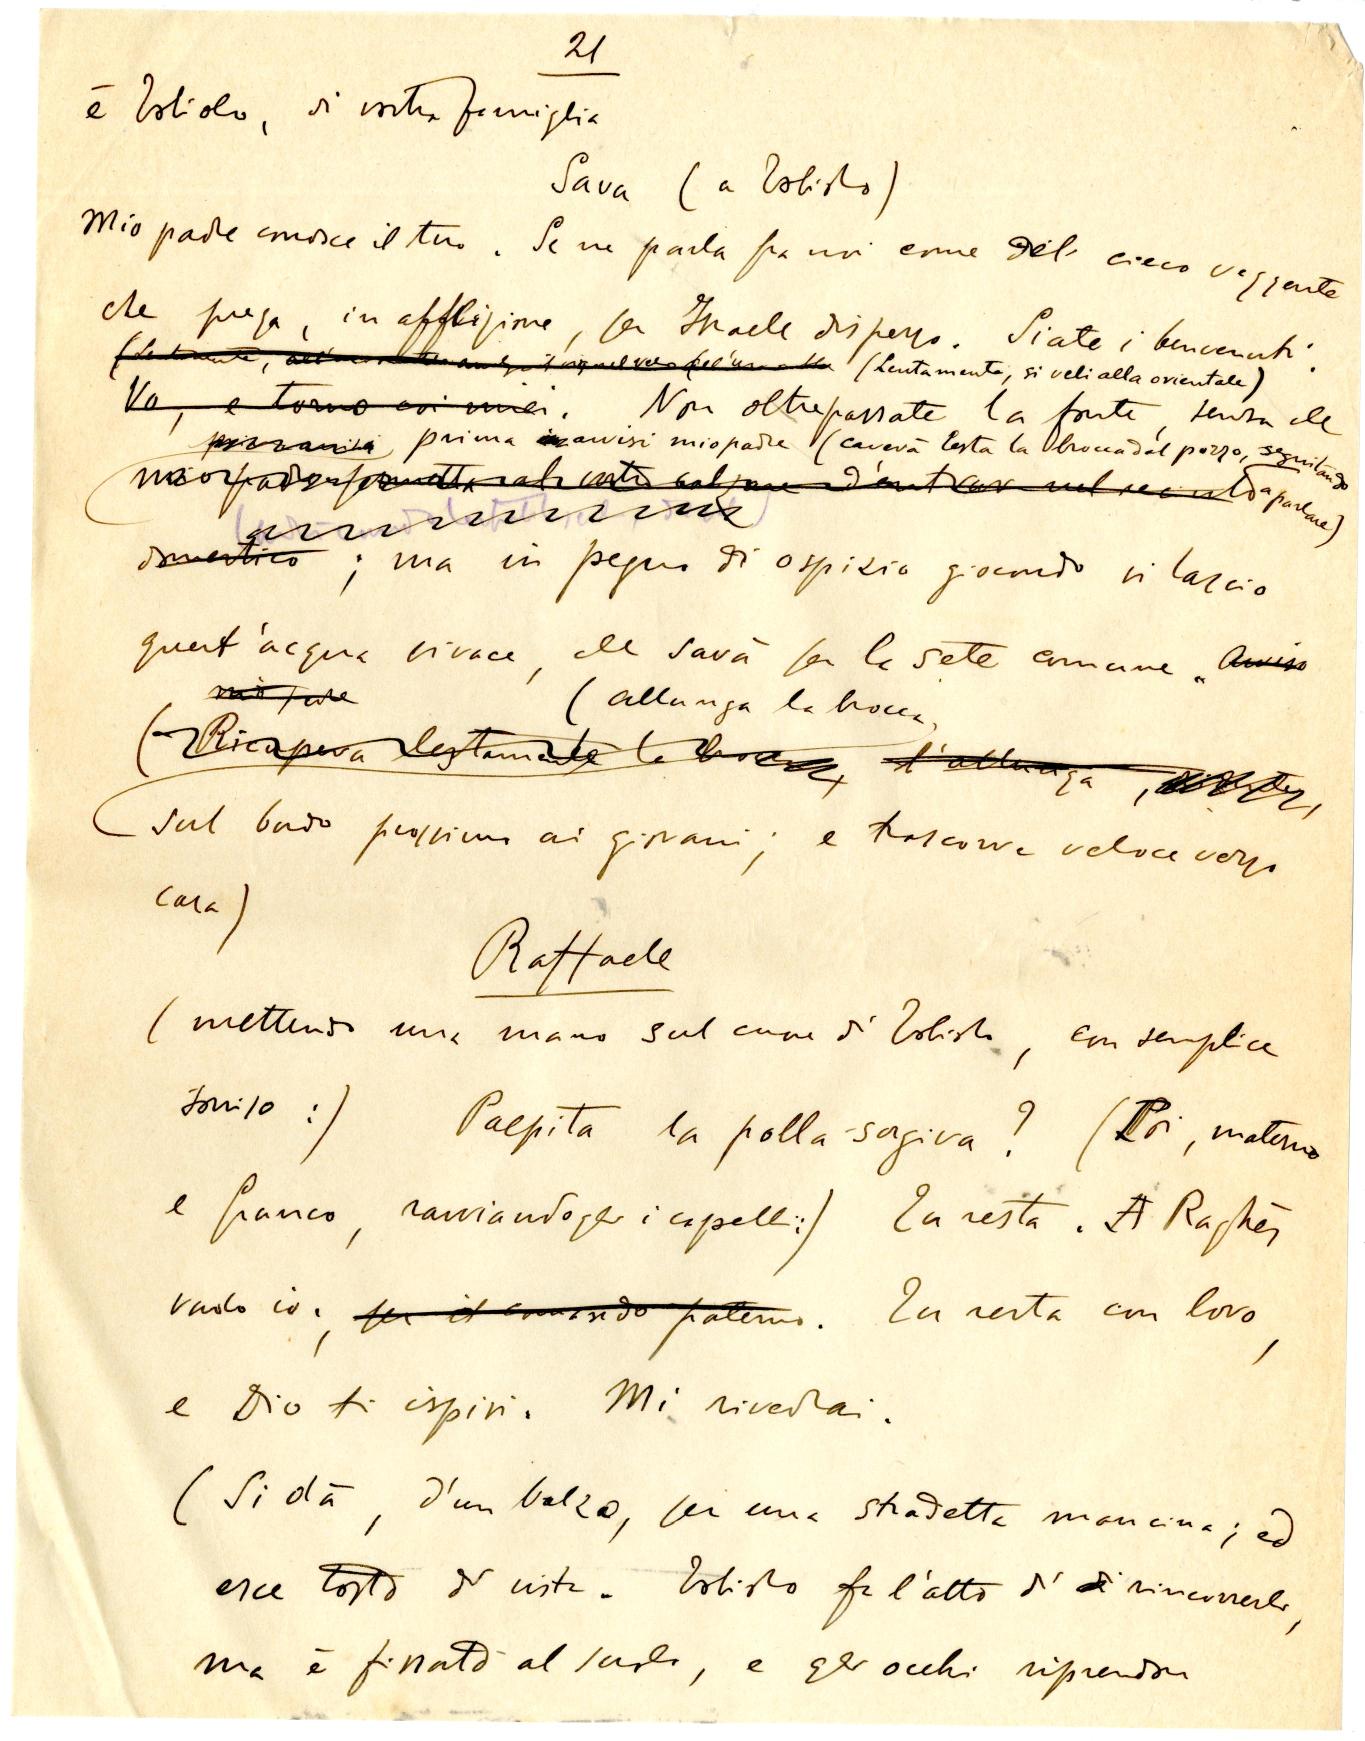 21
è Tobiolo, di vostra famiglia
Sara (a Tobiolo)
Mio padre conosce il tuo. Se ne parla fra noi come del cieco veggente
che prega, in afflizione, per Israele disperso. Siate i benvenuti.
(Lentamente, si veli alla orientale)
Vo, e torno coi miei. Non oltrepassate la fonte, senza che
prima avvisi mio padre (caverà lesta la brocca dal pozzo, seguitando
a parlare)
domestico; ma in pegno di ospizio giocondo vi lascio
quest'acqua vivace, che sarà per la sete comune. Avviso
mio padre (allunga la brocca,
(Ricupera lestamente la brocca, l'allunga,
sul bordo prossimo ai giovani; e trascorre veloce verso
casa)
Raffaele
(mettendo una mano sul cuore di Tobiolo, con semplice
sorriso:) Palpita la polla sorgiva? (Poi, materno
e franco, ravviandogli i capelli:) Tu resta. A Raghès
vado io; per il comando paterno. Tu resta con loro,
e Dio ti ispiri. Mi rivedrai.
(Si dà, d'un balzo, per una stradetta mancina; ed
esce tosto di vista. Tobiolo fa l'atto di rincorrerlo,
ma è fissato al suolo, e gli occhi riprendon